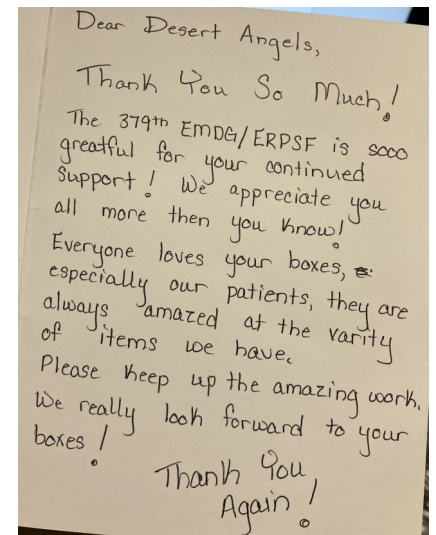 Dear Desert Angels,
Thank You So Much!
The 379th EMDG/ERPSF is sooo
greatful for your continued
Support! We appreciate you
all more then you know!
Everyone loves your boxes,
especially our patients, they are
always amazed at the varity
of items we have.
Please keep up the amazing work.
We really look forward to your
boxes!
Thank You
Again!